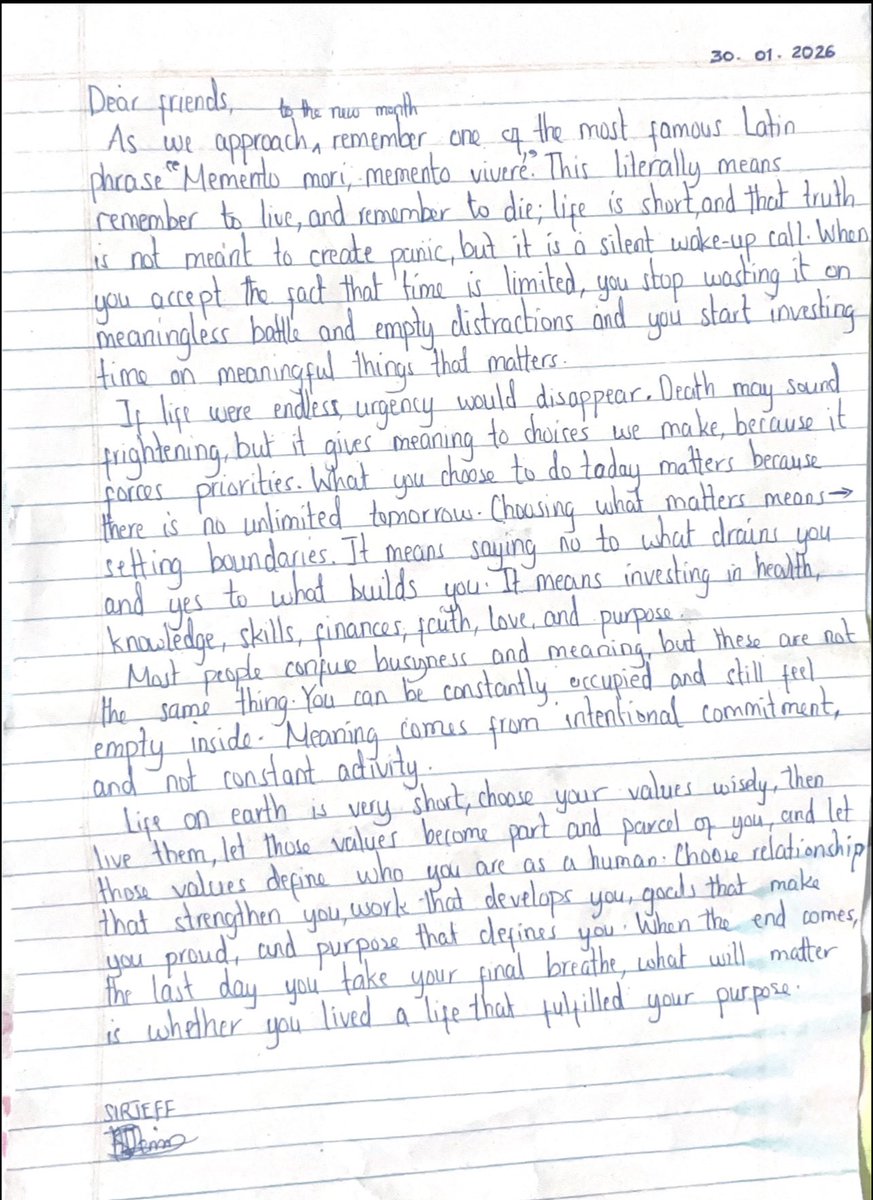 30. 01. 2026
Dear friends,
to the new month
As we approach, remember one of the most famous Latin
phrase "Memento mori, memento vivere". This literally means
remember to live, and remember to die; life is short, and that truth
is not meant to create panic, but it is a silent wake-up call. When
you accept the fact that time is limited, you stop wasting it on
meaningless battle and empty distractions and you start investing
time on meaningful things that matters.
If life were endless, urgency would disappear. Death may sound
frightening, but it gives meaning to choices we make, because it
forces priorities. What you choose to do today matters because
there is no unlimited tomorrow. Choosing what matters means →
setting boundaries. It means saying no to what drains you
and yes to what builds you. It means investing in health,
knowledge, skills, finances, faith, love, and purpose.
Most people confuse busyness and meaning, but these are not
the same thing. You can be constantly occupied and still feel
empty inside. Meaning comes from intentional commitment,
and not constant activity.
Life on earth is very short, choose your values wisely, then
live them, let those values become part and parcel of you, and let
those values define who you are as a human. Choose relationship
that strengthen you, work that develops you, goals that make
you proud, and purpose that defines you. When the end comes,
the last day you take your final breathe, what will matter
is whether you lived a life that fulfilled your purpose.
SIRJEFF